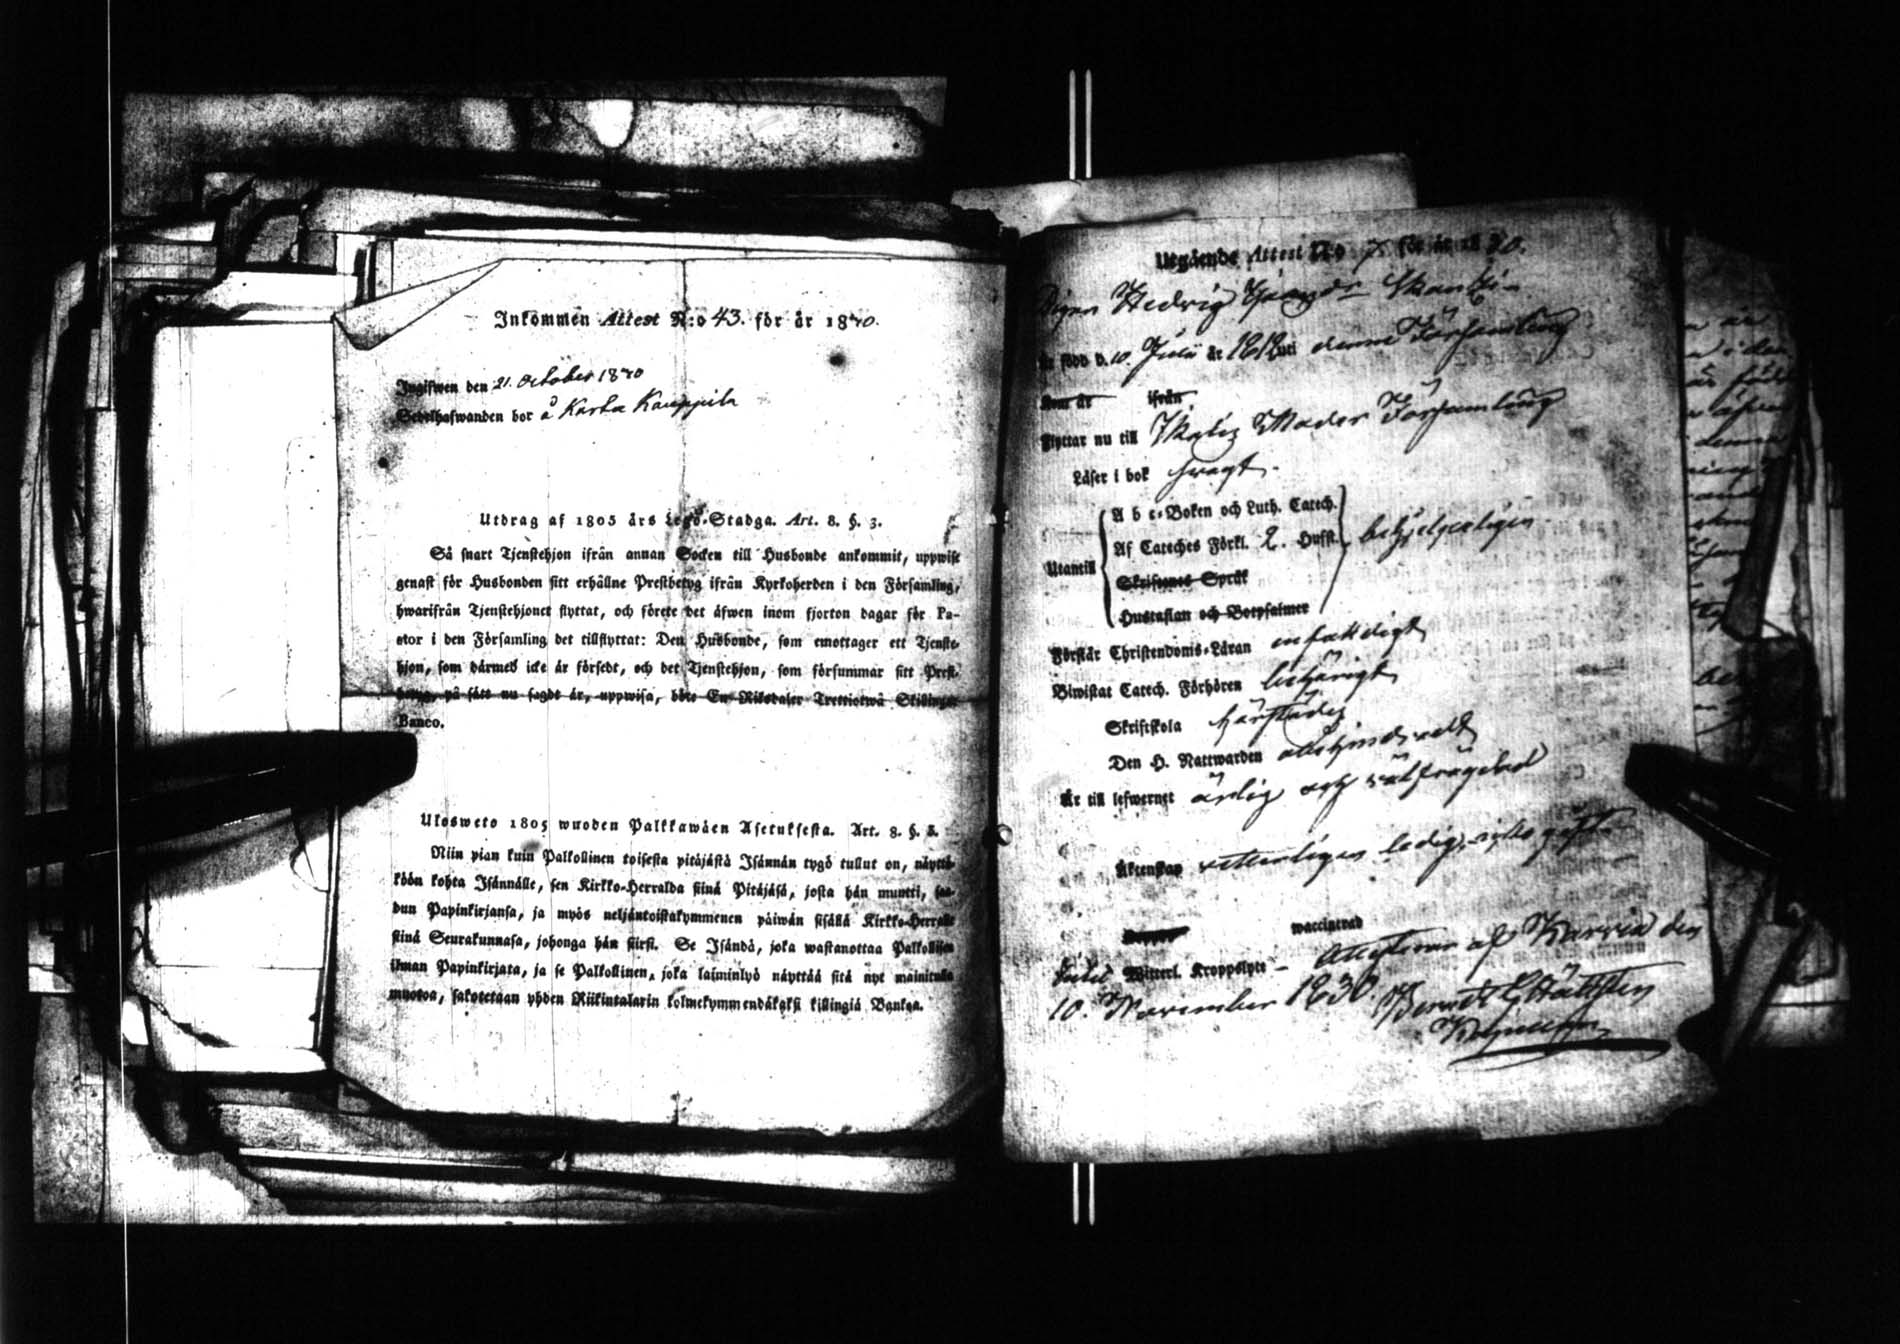 Inkommen Attest N:o 43. för år 1840.
Ingifwen den 21. October 1840
Sedelhafwanden bor å Karba Kauppila
Utdrag af 1805 års Lego-Stadga. Art. 8. §. 3.
Så snart Tjenstehjon ifrån annan Socken till Husbonde ankommit, uppwise
genast för Husbonden sitt erhållne Prestbetyg ifrån Kyrkoherden i den Församling,
hwarifrån Tjenstehjonet flyttat, och förete det äfwen inom fjorton dagar för Pa-
stor i den Församling det tillflyttat: Den Husbonde, som emottager ett Tjenste-
hjon, som därmed icke är försedt, och det Tjenstehjon, som försummar sitt Prest-
betyg, på sätt nu sagdt är, uppwisa, böte En Riksdaler Trettiotwå Skillingar
Banco.
Ulosweto 1805 wuoden Palkkawäen Asetuksesta. Art. 8. §. 3.
Niin pian kuin Palkollinen toisesta pitäjästä Isännän tygö tullut on, näyttä-
köön kohta Isännälle, sen Kirkko-Herralda siinä Pitäjäsä, josta hän muutti, saa-
dun Papinkirjansa, ja myös neljäntoistakymmenen päiwän sisällä Kirkko-Herralle
siinä Seurakunnasa, johonga hän siirsi. Se Isändä, joka wastanottaa Palkollisen
ilman Papinkirjata, ja se Palkollinen, joka laiminlyö näyttää sitä nyt mainitulla
muotoa, sakotetaan yhden Riikintalarin kolmekymmendäkaksi killingiä Bankos.
Utgående Attest N:o 7 för år 1830.
Pigan Hedvig
är född d. 10. Julii år 1812 uti denna Församling
kom år ifrån
flyttar nu till Församling
Läser i bok svagt.
Utantill
A b c-Boken och Luth. Catech.
Af Cateches Förkl. 2. Hufst. behjelpeligen
Skriftenes Språk
Hustaflan och Botpsalmer
Förstår Christendoms-Läran enfaldigt
Biwistat Catech. Förhören behörigt
Skriftskola härstädes
Den H. Nattwarden
Är till lefwernet ärlig och
Äktenskap vetterligen ledig, icke gift
waccinerad
Witterl. Kroppslyte - af den
10. November 1830.